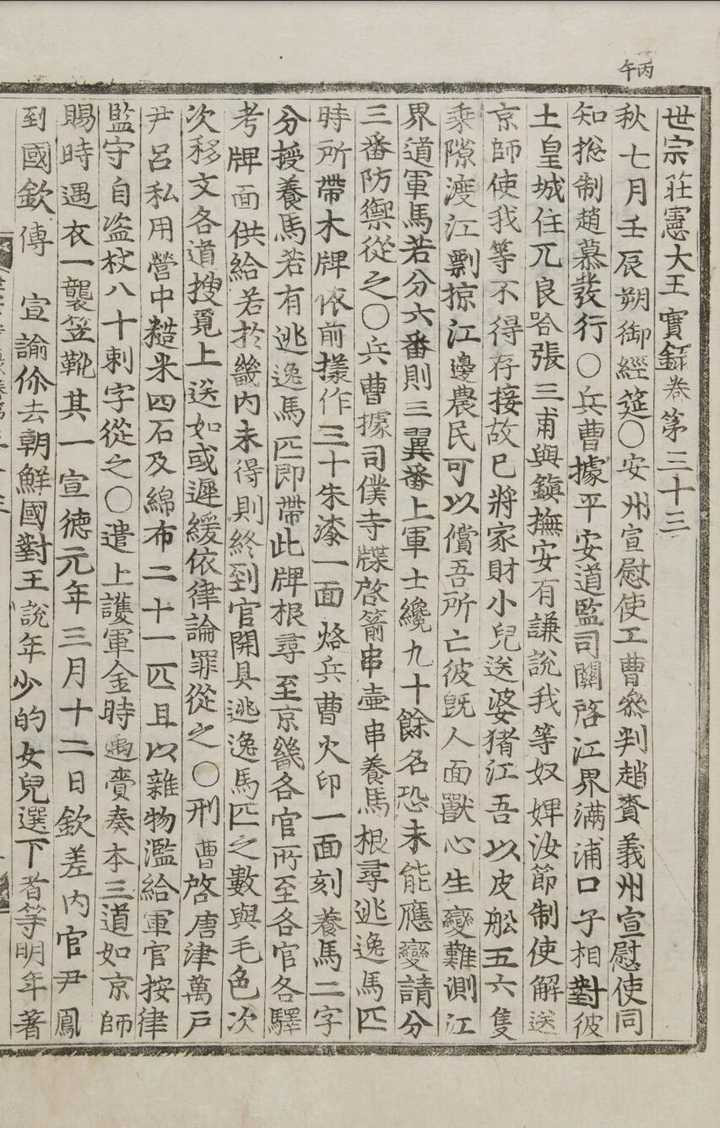 丙午
世宗莊憲大王實錄卷第三十三
秋七月壬辰朔御經筵○安州宣慰使工曹叅判趙賚義州宣慰使同
知摠制趙慕發行○兵曹據平安道監司關啓江界滿浦口子相對彼
土皇城住兀良哈張三甫與鎭撫安有謙說我等奴婢汝節制使解送
京師使我等不得存接故已將家財小兒送婆猪江吾以皮舩五六隻
乘隙渡江剽掠江邊農民可以償吾所亡彼旣人面獸心生變難測江
界道軍馬若分六番則三翼番上軍士纔九十餘名恐未能應變請分
三番防禦從之○兵曹據司僕寺牒啓箭串壷串養馬根尋逃逸馬匹
時所帶木牌依前㨾作三十朱漆一面烙兵曹火印一面刻養馬二字
分授養馬若有逃逸馬匹即帶此牌根尋至京畿各官所至各官各驛
考牌面供給若於畿內未得則終到官開具逃逸馬匹之數與毛色次
次移文各道搜覓上送如或遲緩依律論罪從之○刑曹啓唐津萬戶
尹呂私用營中糙米四石及綿布二十一匹且以雜物濫給軍官按律
監守自盜杖八十刺字從之○遣上護軍金時遇賫奏本三道如京師
賜時遇衣一襲笠靴其一宣德元年三月十二日欽差內官尹鳳
到國欽傳宣諭伱去朝鮮國對王說年少的女兒選下者等明年著